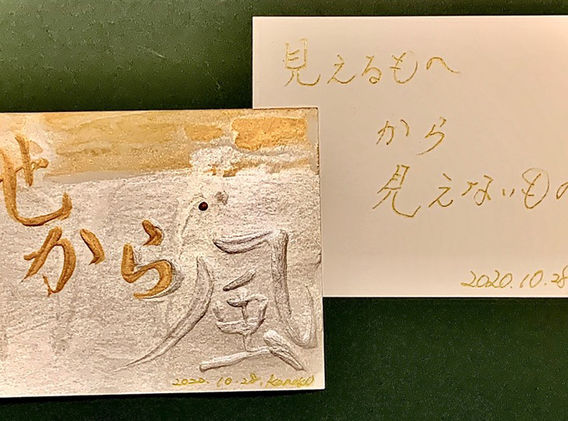 せ
から
風
2020.10.28. Kaneko
見えるものへ
から
見えないもの
2020.10.28